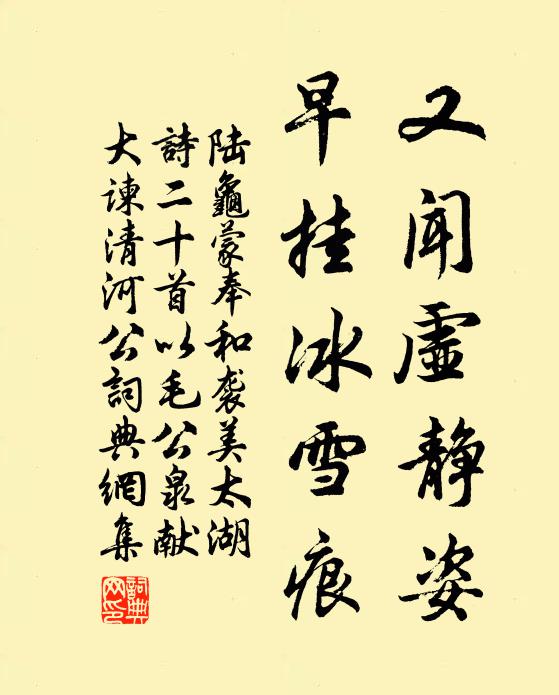 又闻虚静姿
早挂冰雪痕
陆龜蒙奉和袭美太湖
詩二十首以毛公泉献
大谏清河公詞典網集
詞典
网印